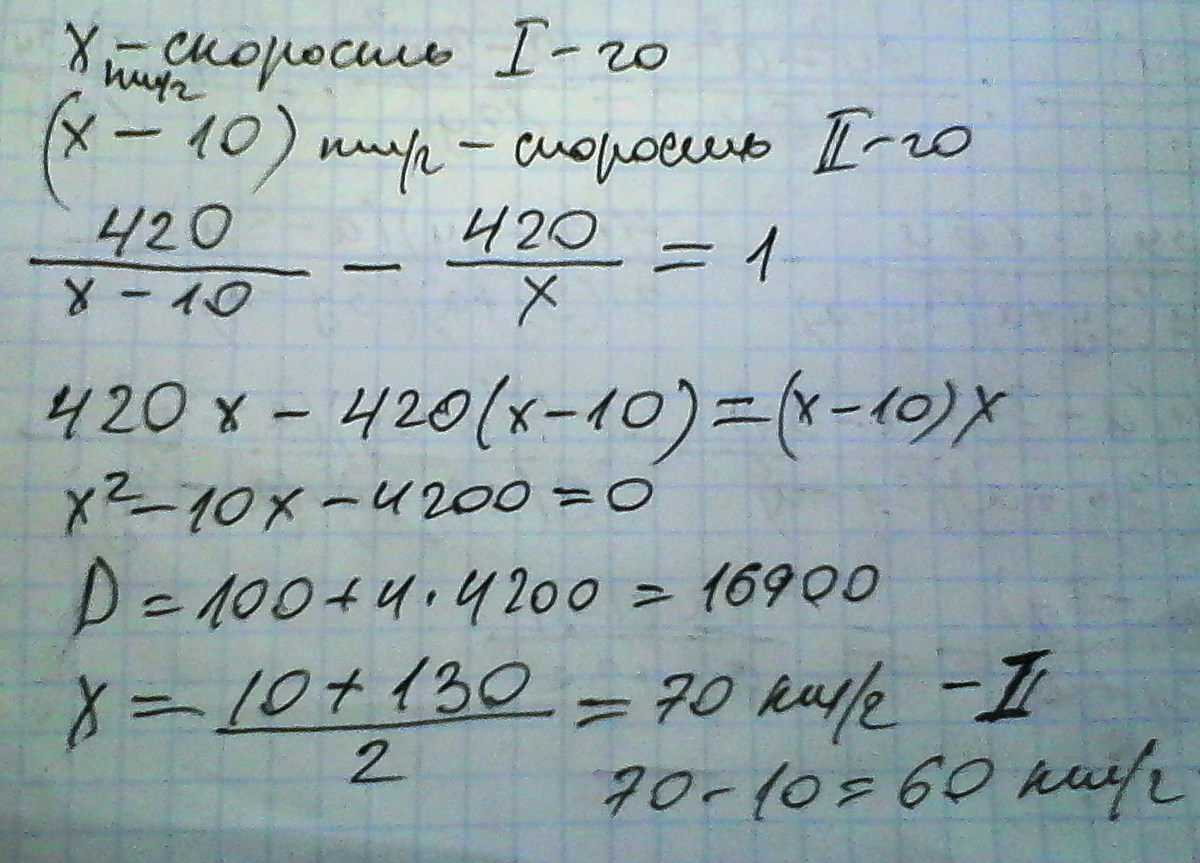 x км/г – скорость I-го
(x – 10) км/г – скорость II-го
420/(x – 10) – 420/x = 1
420x – 420(x – 10) = (x – 10)x
x² – 10x – 4200 = 0
D = 100 + 4·4200 = 16900
x = (10 + 130)/2 = 70 км/г – II
70 – 10 = 60 км/г